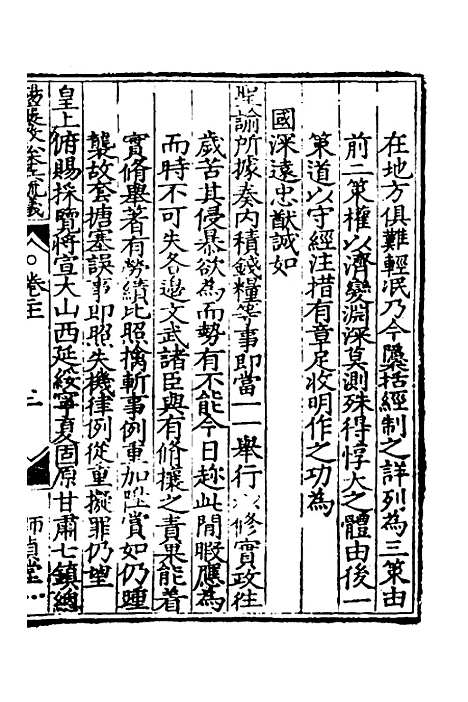 在地方俱難輕泯乃今隱括經制之詳列為三策由
前二策權以濟變淵深莫測殊得惇大之體由後一
策道以守經注措有章足收明作之功為
國深遠忠猷誠如
聖諭所據奏內積錢糧等事即當一一舉行以修實政往
歲苦其侵暴欲為而勢有不能今日趁此閒暇應為
而時不可失各邊文武諸臣與有脩攘之責果能著
實脩舉著有勞績比照擒斬事例重加陞賞如仍踵
襲故套搪塞誤事即照失機律例從重擬罪仍望
皇上俯賜採覽將宣大山西延綏寧夏固原甘肅七鎮總
卷三
三